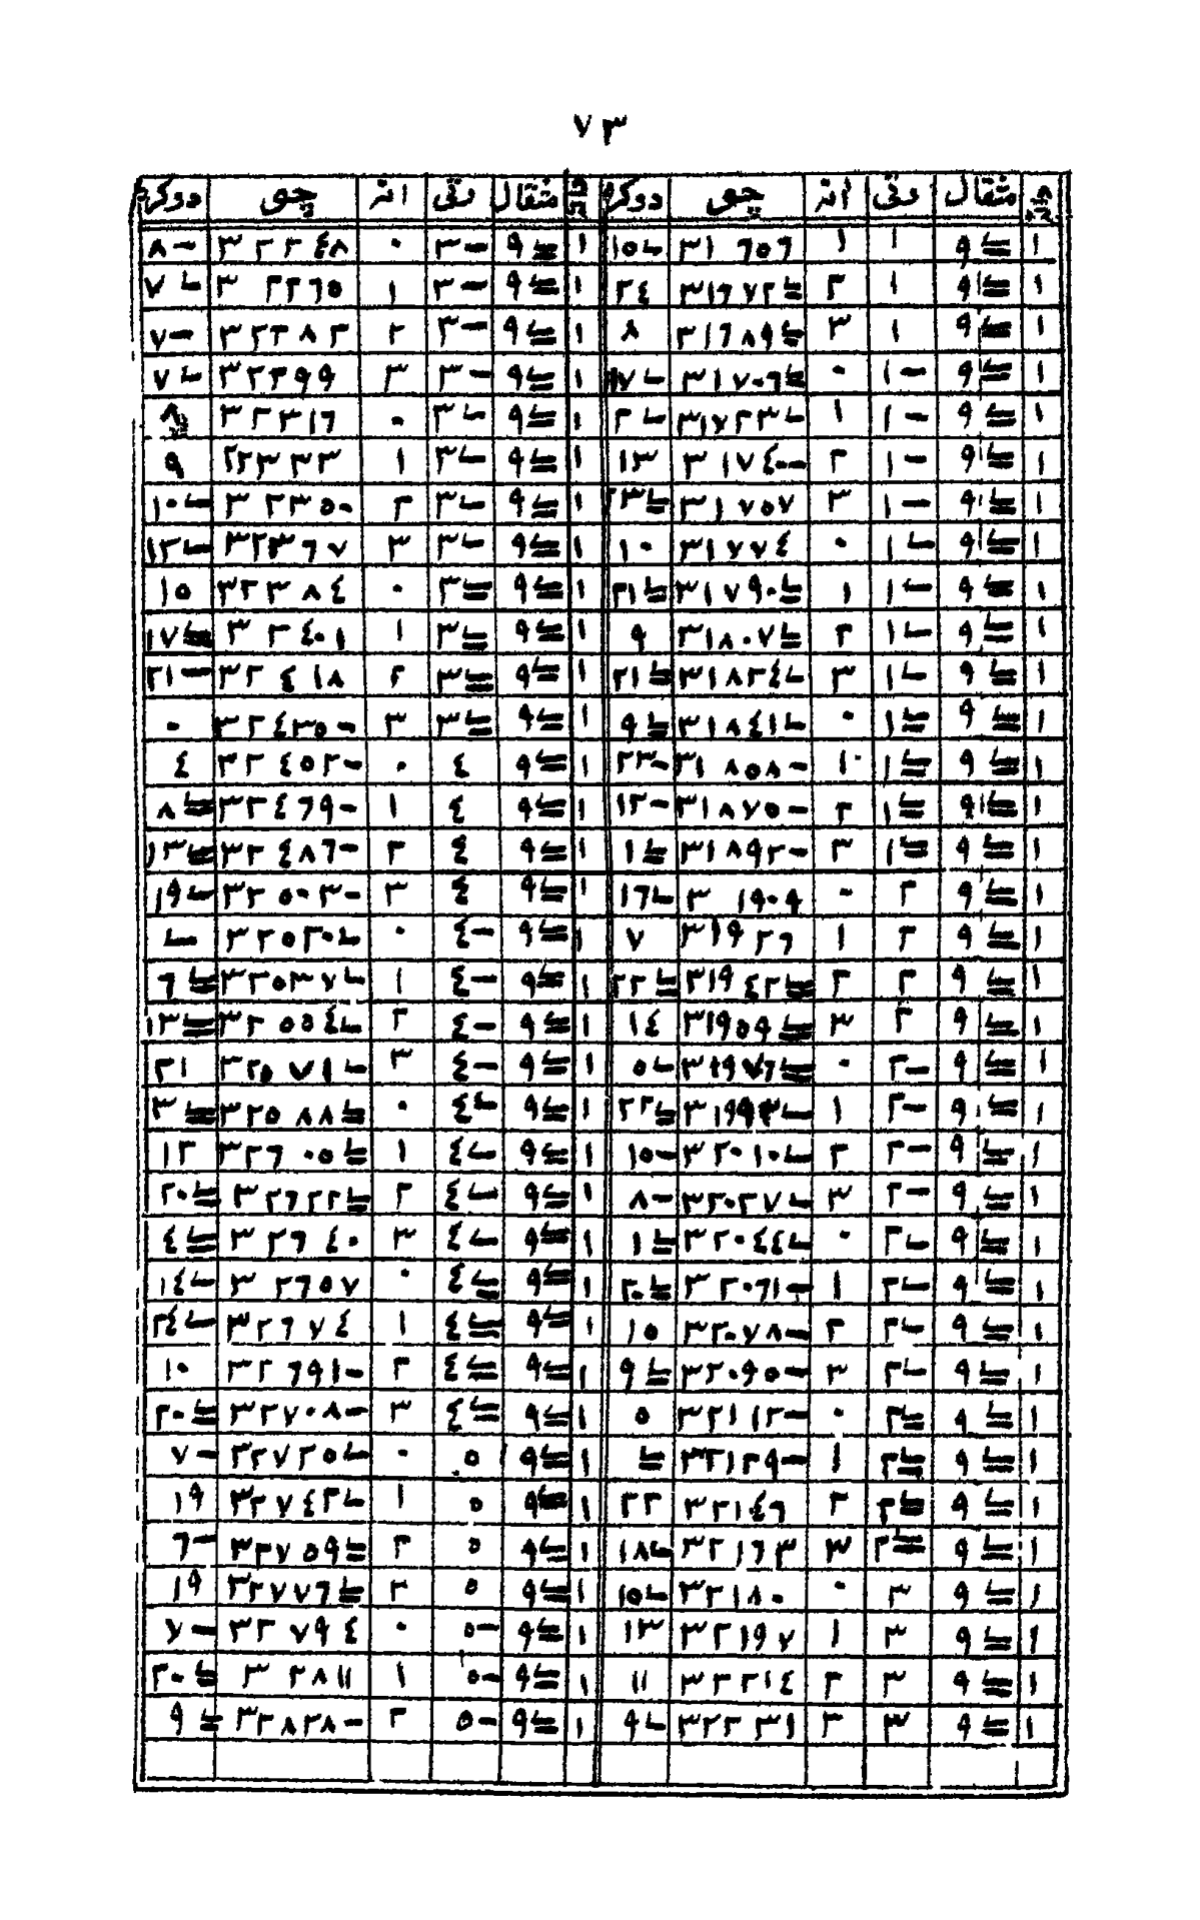 ٧٣
مثقال رتى انه چو دوكره مثقال رتى انه چو دوكره
١ ٩ ١ ١ ٣١٦٥٦ ١٥ ١ ٩ ٣ ٠ ٣٢٢٤٨ ٨
١ ٩ ١ ٢ ٣١٦٧٢ ٢٤ ١ ٩ ٣ ١ ٣٢٢٦٥ ٧
١ ٩ ١ ٣ ٣١٦٨٩ ٨ ١ ٩ ٣ ٢ ٣٢٢٨٢ ٧
١ ٩ ١ ٠ ٣١٧٠٦ ١٧ ١ ٩ ٣ ٣ ٣٢٢٩٩ ٧
١ ٩ ١ ١ ٣١٧٢٣ ٢ ١ ٩ ٣ ٠ ٣٢٣١٦ ٨
١ ٩ ١ ٢ ٣١٧٤٠ ١٣ ١ ٩ ٣ ١ ٣٢٣٣٣ ٩
١ ٩ ١ ٣ ٣١٧٥٧ ٢٣ ١ ٩ ٣ ٢ ٣٢٣٥٠ ١٠
١ ٩ ١ ٠ ٣١٧٧٤ ١٠ ١ ٩ ٣ ٣ ٣٢٣٦٧ ١٢
١ ٩ ١ ١ ٣١٧٩٠ ٢١ ١ ٩ ٣ ٠ ٣٢٣٨٤ ١٥
١ ٩ ١ ٢ ٣١٨٠٧ ٩ ١ ٩ ٣ ١ ٣٢٤٠١ ١٧
١ ٩ ١ ٣ ٣١٨٢٤ ٢١ ١ ٩ ٣ ٢ ٣٢٤١٨ ٢١
١ ٩ ١ ٠ ٣١٨٤١ ٩ ١ ٩ ٣ ٣ ٣٢٤٣٥ ٠
١ ٩ ١ ١ ٣١٨٥٨ ٢٣ ١ ٩ ٤ ٠ ٣٢٤٥٢ ٤
١ ٩ ١ ٢ ٣١٨٧٥ ١٢ ١ ٩ ٤ ١ ٣٢٤٦٩ ٨
١ ٩ ١ ٣ ٣١٨٩٢ ١ ١ ٩ ٤ ٢ ٣٢٤٨٦ ١٣
١ ٩ ٢ ٠ ٣١٩٠٩ ١٦ ١ ٩ ٤ ٣ ٣٢٥٠٣ ١٩
١ ٩ ٢ ١ ٣١٩٢٦ ٧ ١ ٩ ٤ ٠ ٣٢٥٢٠
١ ٩ ٢ ٢ ٣١٩٤٢ ٢٢ ١ ٩ ٤ ١ ٣٢٥٣٧ ٦
١ ٩ ٢ ٣ ٣١٩٥٩ ١٤ ١ ٩ ٤ ٢ ٣٢٥٥٤ ١٣
١ ٩ ٢ ٠ ٣١٩٧٦ ٥ ١ ٩ ٤ ٣ ٣٢٥٧١ ٢١
١ ٩ ٢ ١ ٣١٩٩٣ ٢٢ ١ ٩ ٤ ٠ ٣٢٥٨٨ ٣
١ ٩ ٢ ٢ ٣٢٠١٠ ١٥ ١ ٩ ٤ ١ ٣٢٦٠٥ ١٢
١ ٩ ٢ ٣ ٣٢٠٢٧ ٨ ١ ٩ ٤ ٢ ٣٢٦٢٢ ٢٠
١ ٩ ٢ ٠ ٣٢٠٤٤ ١ ١ ٩ ٤ ٣ ٣٢٦٤٠ ٤
١ ٩ ٢ ١ ٣٢٠٦١ ٢٠ ١ ٩ ٤ ٠ ٣٢٦٥٧ ١٤
١ ٩ ٢ ٢ ٣٢٠٧٨ ١٥ ١ ٩ ٤ ١ ٣٢٦٧٤ ٢٤
١ ٩ ٢ ٣ ٣٢٠٩٥ ٩ ١ ٩ ٤ ٢ ٣٢٦٩١ ١٠
١ ٩ ٢ ٠ ٣٢١١٢ ٥ ١ ٩ ٤ ٣ ٣٢٧٠٨ ٢٠
١ ٩ ٢ ١ ٣٢١٢٩ ١ ٩ ٥ ٠ ٣٢٧٢٥ ٧
١ ٩ ٢ ٢ ٣٢١٤٦ ٢٢ ١ ٩ ٥ ١ ٣٢٧٤٢ ١٩
١ ٩ ٢ ٣ ٣٢١٦٣ ١٨ ١ ٩ ٥ ٢ ٣٢٧٥٩ ٦
١ ٩ ٣ ٠ ٣٢١٨٠ ١٥ ١ ٩ ٥ ٣ ٣٢٧٧٦ ١٩
١ ٩ ٣ ١ ٣٢١٩٧ ١٣ ١ ٩ ٥ ٠ ٣٢٧٩٤ ٧
١ ٩ ٣ ٢ ٣٢٢١٤ ١١ ١ ٩ ٥ ١ ٣٢٨١١ ٢٠
١ ٩ ٣ ٣ ٣٢٢٣١ ٩ ١ ٩ ٥ ٢ ٣٢٨٢٨ ٩